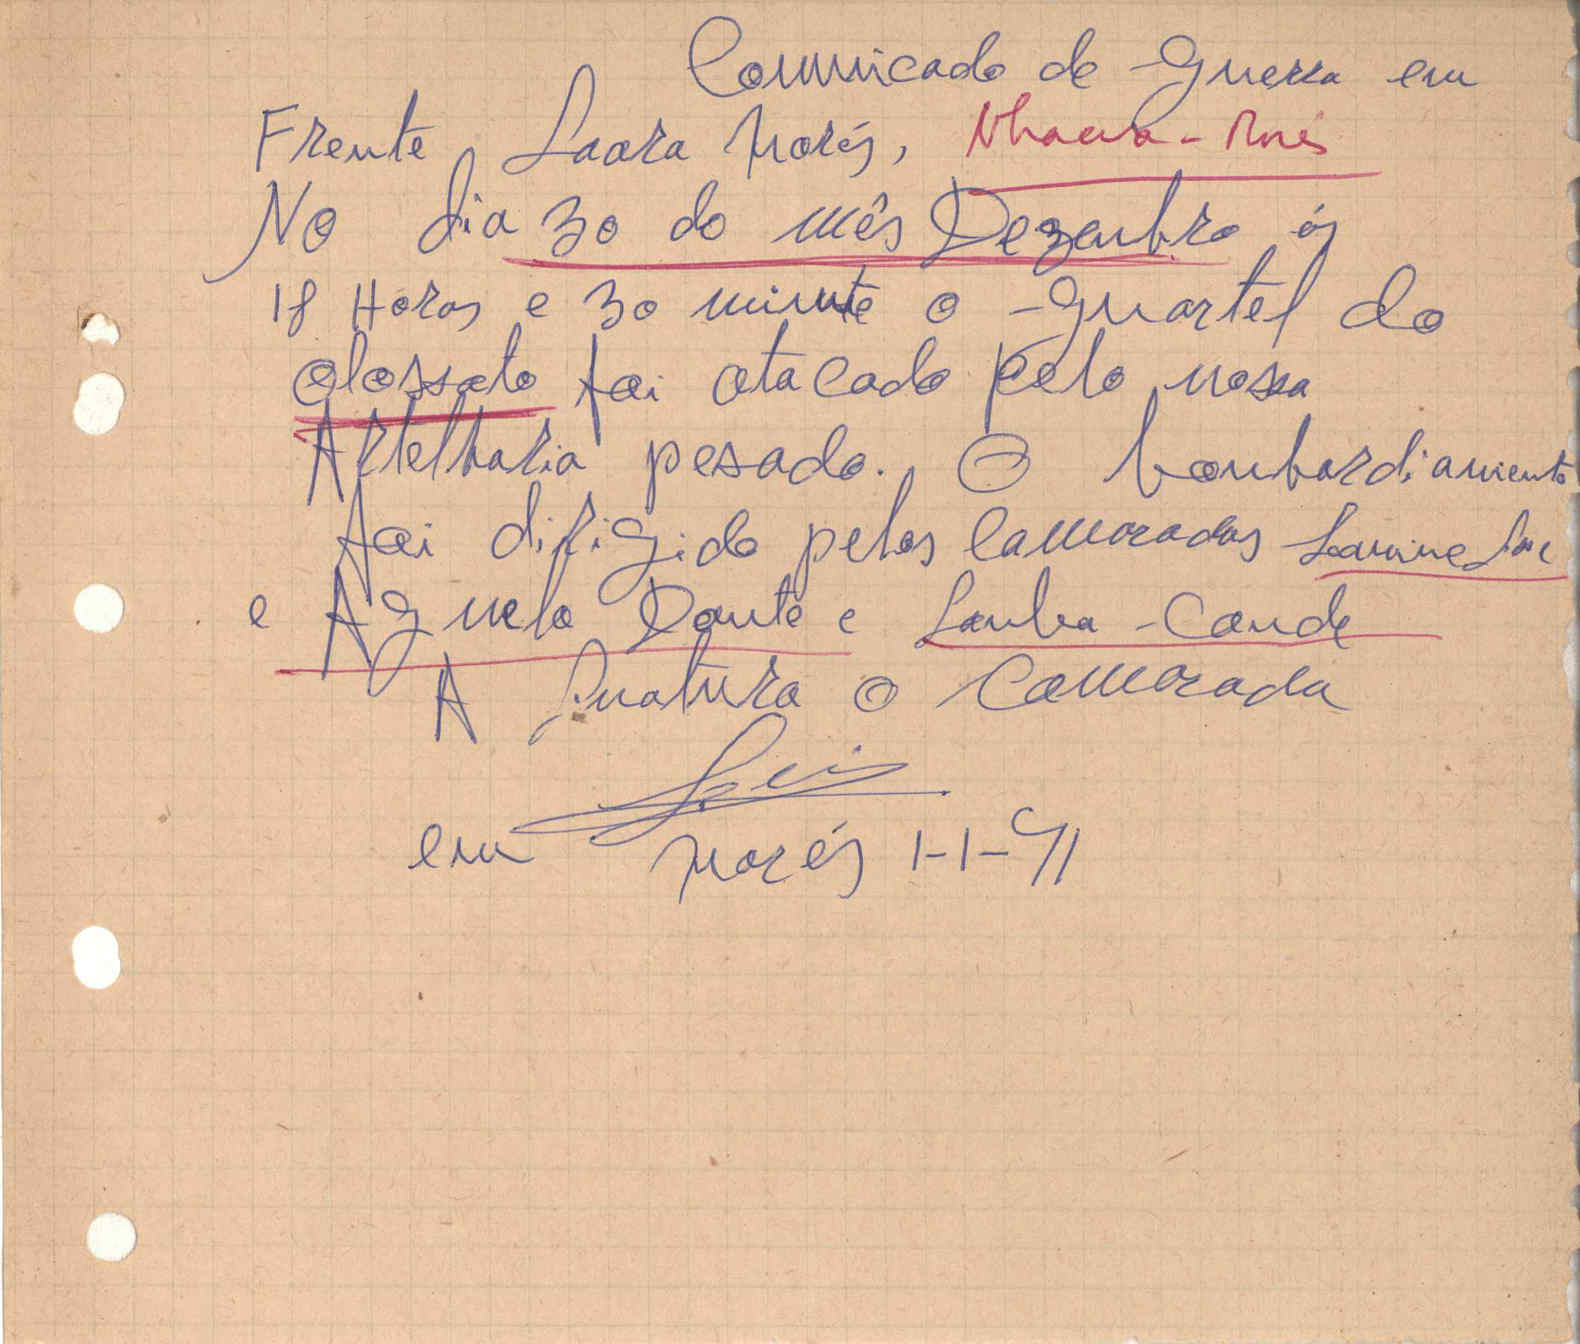 Comunicado de Guerra em
Frente Saara Morés, Nhacra-Morés
No dia 30 do mês Dezenbro ás
18 Horas e 30 minute o Guartel do
olossato foi atacado pelo nossa
Artelharia pesado. O bonbardiamento
foi dirigido pelos Camaradas Lamine
e Agnelo Dante e Samba Cande
A Sinatura o Camarada
em Morés 1-1-71